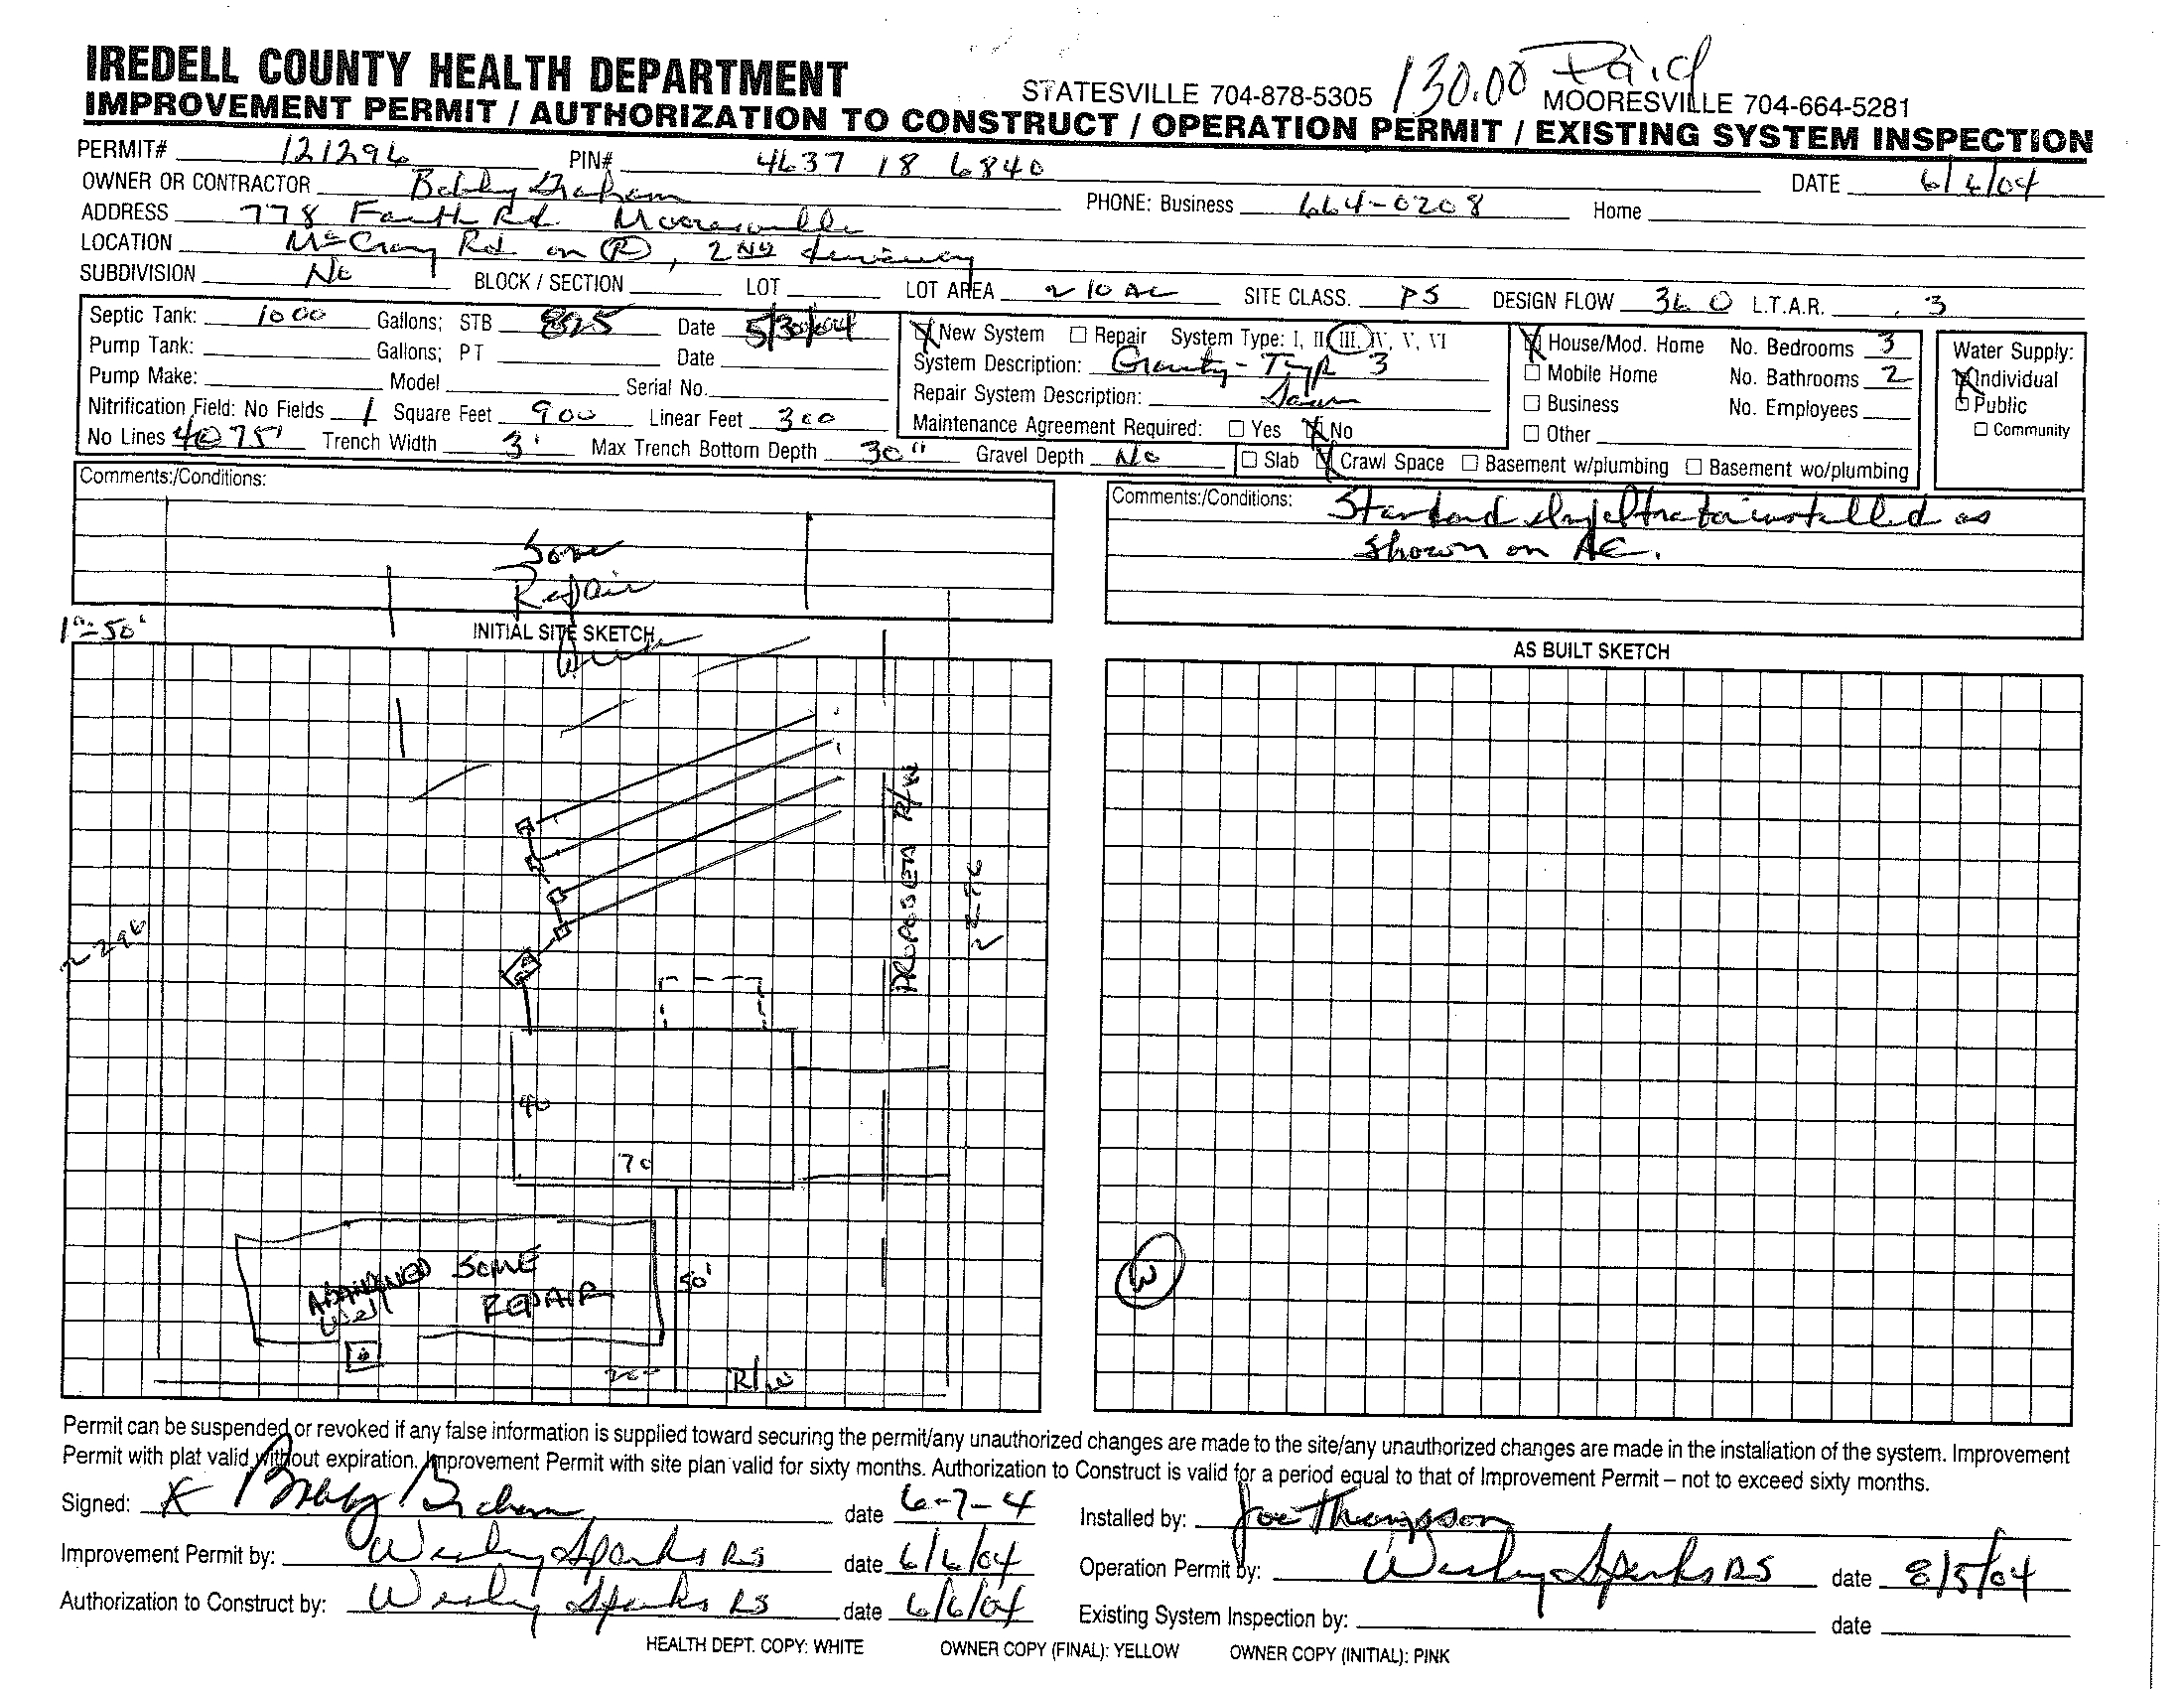 130.00 Paid
IREDELL COUNTY HEALTH DEPARTMENT
STATESVILLE 704-878-5305 MOORESVILLE 704-664-5281
IMPROVEMENT PERMIT / AUTHORIZATION TO CONSTRUCT / OPERATION PERMIT / EXISTING SYSTEM INSPECTION
PERMIT# 121296 PIN# 4637 18 6840
OWNER OR CONTRACTOR Bobby Graham DATE 6/6/04
ADDRESS 778 Faith Rd Mooresville PHONE: Business 664-0208 Home
LOCATION McCrary Rd on R, 2ND driveway
SUBDIVISION No BLOCK / SECTION LOT LOT AREA ~ 10 AC SITE CLASS. PS DESIGN FLOW 360 L.T.A.R. .3
Septic Tank: 1000 Gallons; STB 825 Date 5/30/04
Pump Tank: Gallons; PT Date
Pump Make: Model Serial No.
Nitrification Field: No Fields 1 Square Feet 900 Linear Feet 300
No Lines 4@75' Trench Width 3' Max Trench Bottom Depth 30" Gravel Depth No
X New System Repair System Type: I, II, III, IV, V, VI
System Description: Gravity - Type 3
Repair System Description: Same
Maintenance Agreement Required: Yes X No
X House/Mod. Home No. Bedrooms 3
Mobile Home No. Bathrooms 2
Business No. Employees
Other
Slab X Crawl Space Basement w/plumbing Basement wo/plumbing
Water Supply:
X Individual
Public
Community
Comments:/Conditions:
Some
Repair
1"=50'
INITIAL SITE SKETCH
~ 296
PROPOSED R/W
~ 296
40
70
ABANDONED
Well
SOME
REPAIR
50'
200
R/W
Comments:/Conditions: Standard Infiltrator installed as
shown on AC.
AS BUILT SKETCH
W
Permit can be suspended or revoked if any false information is supplied toward securing the permit/any unauthorized changes are made to the site/any unauthorized changes are made in the installation of the system. Improvement
Permit with plat valid without expiration. Improvement Permit with site plan valid for sixty months. Authorization to Construct is valid for a period equal to that of Improvement Permit – not to exceed sixty months.
Signed: X Bobby Graham date 6-7-4
Installed by: Joe Thompson
Improvement Permit by: Wesley Sparks RS date 6/6/04
Operation Permit by: Wesley Sparks RS date 8/5/04
Authorization to Construct by: Wesley Sparks RS date 6/6/04
Existing System Inspection by: date
HEALTH DEPT. COPY: WHITE OWNER COPY (FINAL): YELLOW OWNER COPY (INITIAL): PINK